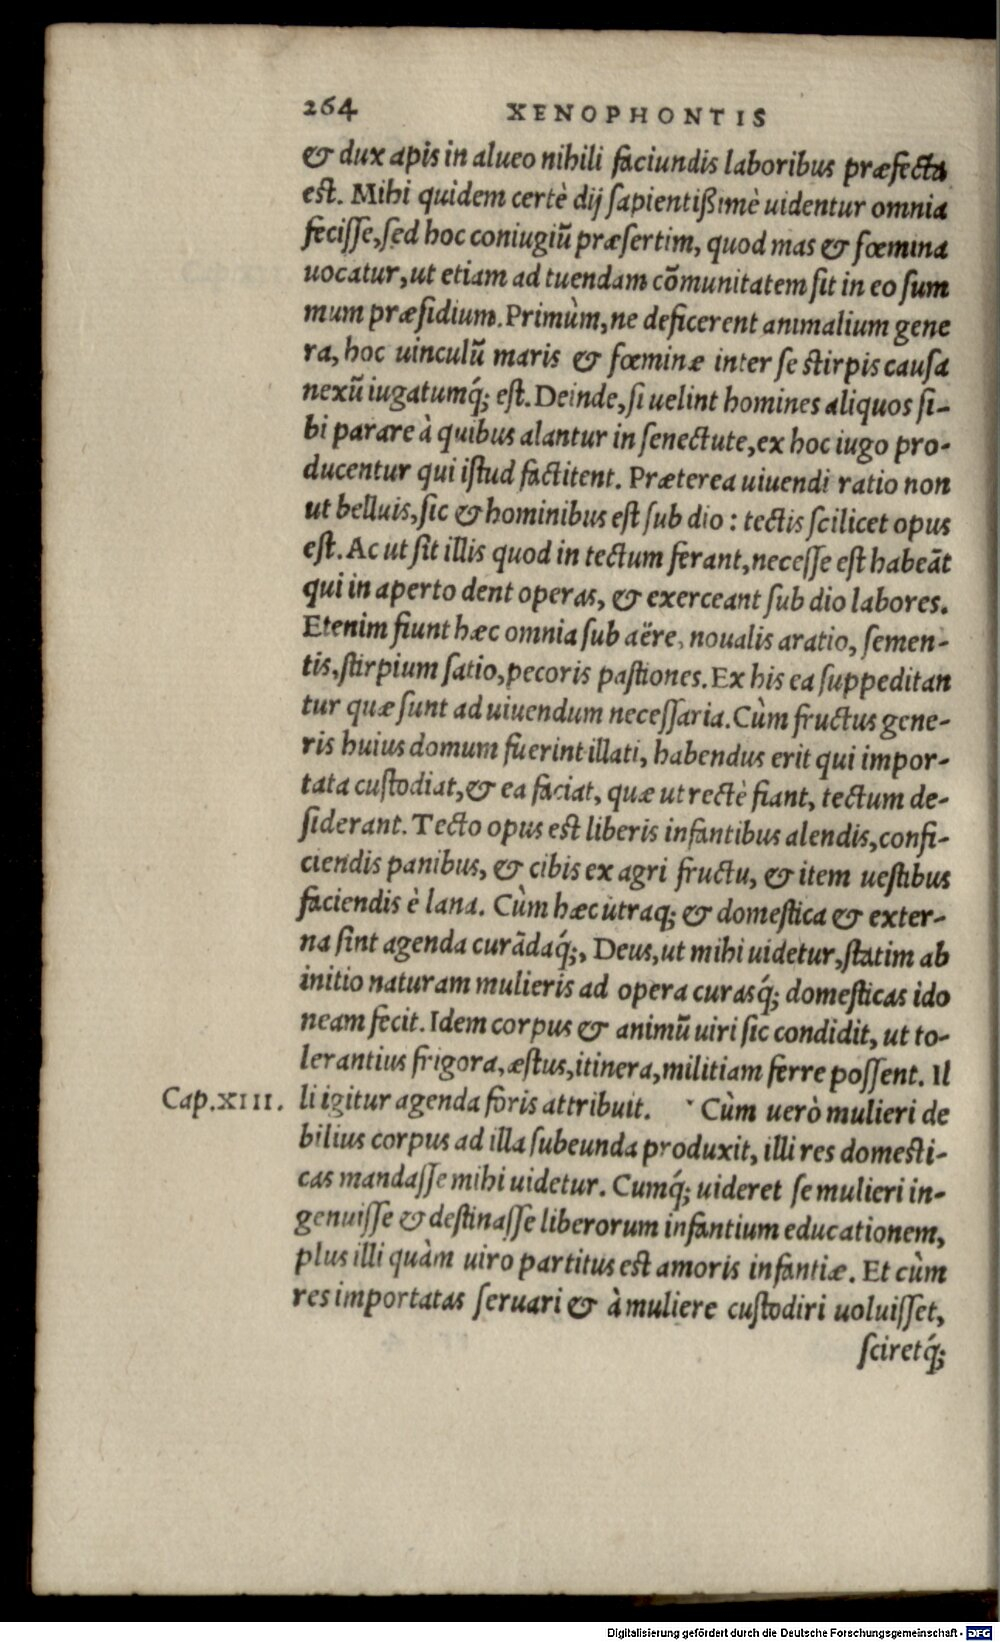 264 XENOPHONTIS
& dux apis in alueo nihili faciundis laboribus præfecta
est. Mihi quidem certè dij sapientißimè uidentur omnia
fecisse, sed hoc coniugiũ præsertim, quod mas & fœmina
uocatur, ut etiam ad tuendam cõmunitatem sit in eo sum
mum præsidium. Primùm, ne deficerent animalium gene
ra, hoc uinculũ maris & fœminæ inter se stirpis causa
nexũ iugatumq́; est. Deinde, si uelint homines aliquos si-
bi parare à quibus alantur in senectute, ex hoc iugo pro-
ducentur qui istud factitent. Præterea uiuendi ratio non
ut belluis, sic & hominibus est sub dio: tectis scilicet opus
est. Ac ut sit illis quod in tectum ferant, necesse est habeãt
qui in aperto dent operas, & exerceant sub dio labores.
Etenim fiunt hæc omnia sub aëre, noualis aratio, semen-
tis, stirpium satio, pecoris pastiones. Ex his ea suppeditan
tur quæ sunt ad uiuendum necessaria. Cùm fructus gene-
ris huius domum fuerint illati, habendus erit qui impor-
tata custodiat, & ea faciat, quæ ut rectè fiant, tectum de-
siderant. Tecto opus est liberis infantibus alendis, confi-
ciendis panibus, & cibis ex agri fructu, & item uestibus
faciendis è lana. Cùm hæc utraq; & domestica & exter-
na sint agenda curãdaq́;, Deus, ut mihi uidetur, statim ab
initio naturam mulieris ad opera curasq́; domesticas ido
neam fecit. Idem corpus & animũ uiri sic condidit, ut to-
lerantius frigora, æstus, itinera, militiam ferre possent. Il
Cap.XIII. li igitur agenda foris attribuit. Cùm uerò mulieri de
bilius corpus ad illa subeunda produxit, illi res domesti-
cas mandasse mihi uidetur. Cumq́; uideret se mulieri in-
genuisse & destinasse liberorum infantium educationem,
plus illi quàm uiro partitus est amoris infantiæ. Et cùm
res importatas seruari & à muliere custodiri uoluisset,
sciretq́;
Digitalisierung gefördert durch die Deutsche Forschungsgemeinschaft - DFG